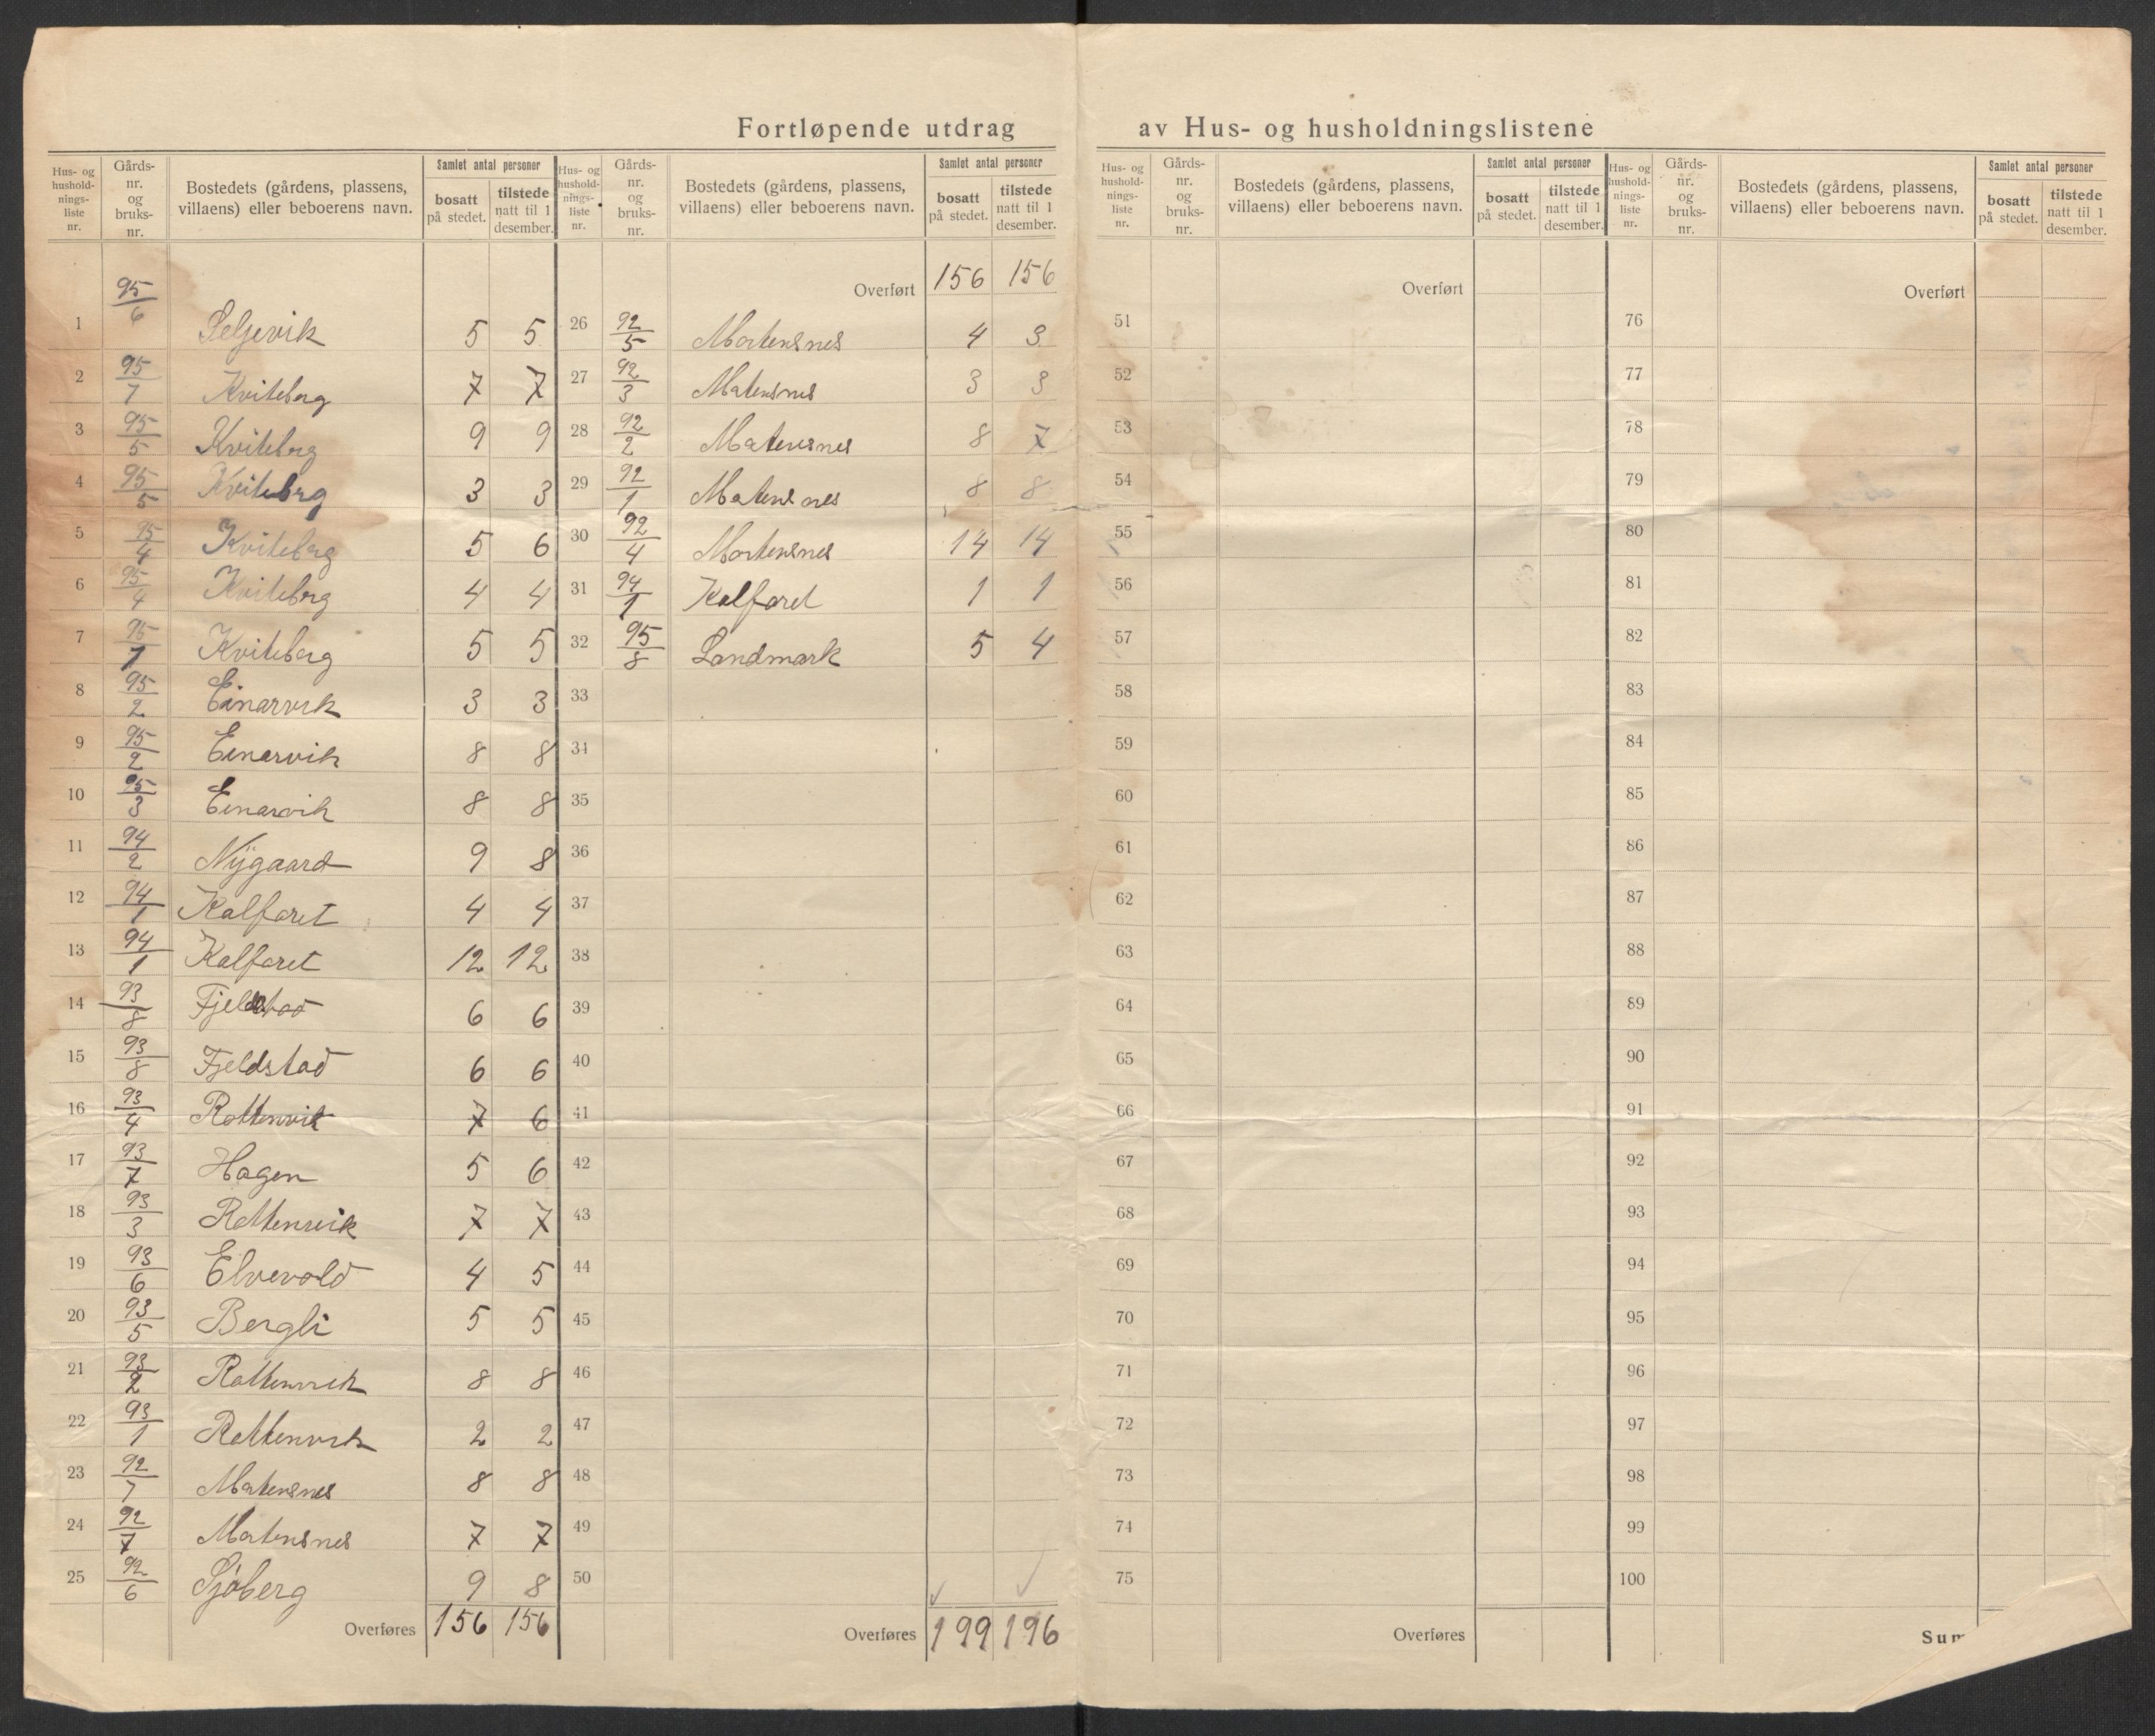 Fortløpende utdrag av Hus- og husholdningslistene
Hus- og hushold-nings-liste nr. Gårds-nr. og bruks-nr. Bostedets (gårdens, plassens, villaens) eller beboerens navn. Samlet antal personer bosatt på stedet. tilstede natt til 1 desember.
1 95/6 Seljevik 5 5
2 95/7 Kviteberg 7 7
3 95/5 Kviteberg 9 9
4 95/5 Kviteberg 3 3
5 95/4 Kviteberg 5 6
6 95/4 Kviteberg 4 4
7 95/1 Kviteberg 5 5
8 95/2 Einarvik 3 3
9 95/2 Einarvik 8 8
10 95/3 Einarvik 8 8
11 94/2 Nÿgaard 9 8
12 94/1 Kalfaret 4 4
13 94/1 Kalfaret 12 12
14 93/8 Fjeldstad 6 6
15 93/8 Fjeldstad 6 6
16 93/4 Rottenvik 7 6
17 93/7 Hagen 5 6
18 93/3 Rottenvik 7 7
19 93/6 Elvevold 4 5
20 93/5 Bergli 5 5
21 93/2 Rottenvik 8 8
22 93/1 Rottenvik 2 2
23 92/7 Mortensnes 8 8
24 92/7 Mortensnes 7 7
25 92/6 Sjöberg 9 8
Overføres 156 156
Hus- og hushold-nings-liste nr. Gårds-nr. og bruks-nr. Bostedets (gårdens, plassens, villaens) eller beboerens navn. Samlet antal personer bosatt på stedet. tilstede natt til 1 desember.
Overført 156 156
26 92/5 Mortensnes 4 3
27 92/3 Matensnes 3 3
28 92/2 Matensnes 8 7
29 92/1 Matensnes 8 8
30 92/4 Mortensnes 14 14
31 94/1 Kalfaret 1 1
32 95/8 Landmark 5 4
33
34
35
36
37
38
39
40
41
42
43
44
45
46
47
48
49
50
Overføres 199 196
Hus- og hushold-nings-liste nr. Gårds-nr. og bruks-nr. Bostedets (gårdens, plassens, villaens) eller beboerens navn. Samlet antal personer bosatt på stedet. tilstede natt til 1 desember.
Overført
51
52
53
54
55
56
57
58
59
60
61
62
63
64
65
66
67
68
69
70
71
72
73
74
75
Overføres
Hus- og hushold-nings-liste nr. Gårds-nr. og bruks-nr. Bostedets (gårdens, plassens, villaens) eller beboerens navn. Samlet antal personer bosatt på stedet. tilstede natt til 1 desember.
Overført
76
77
78
79
80
81
82
83
84
85
86
87
88
89
90
91
92
93
94
95
96
97
98
99
100
Sum